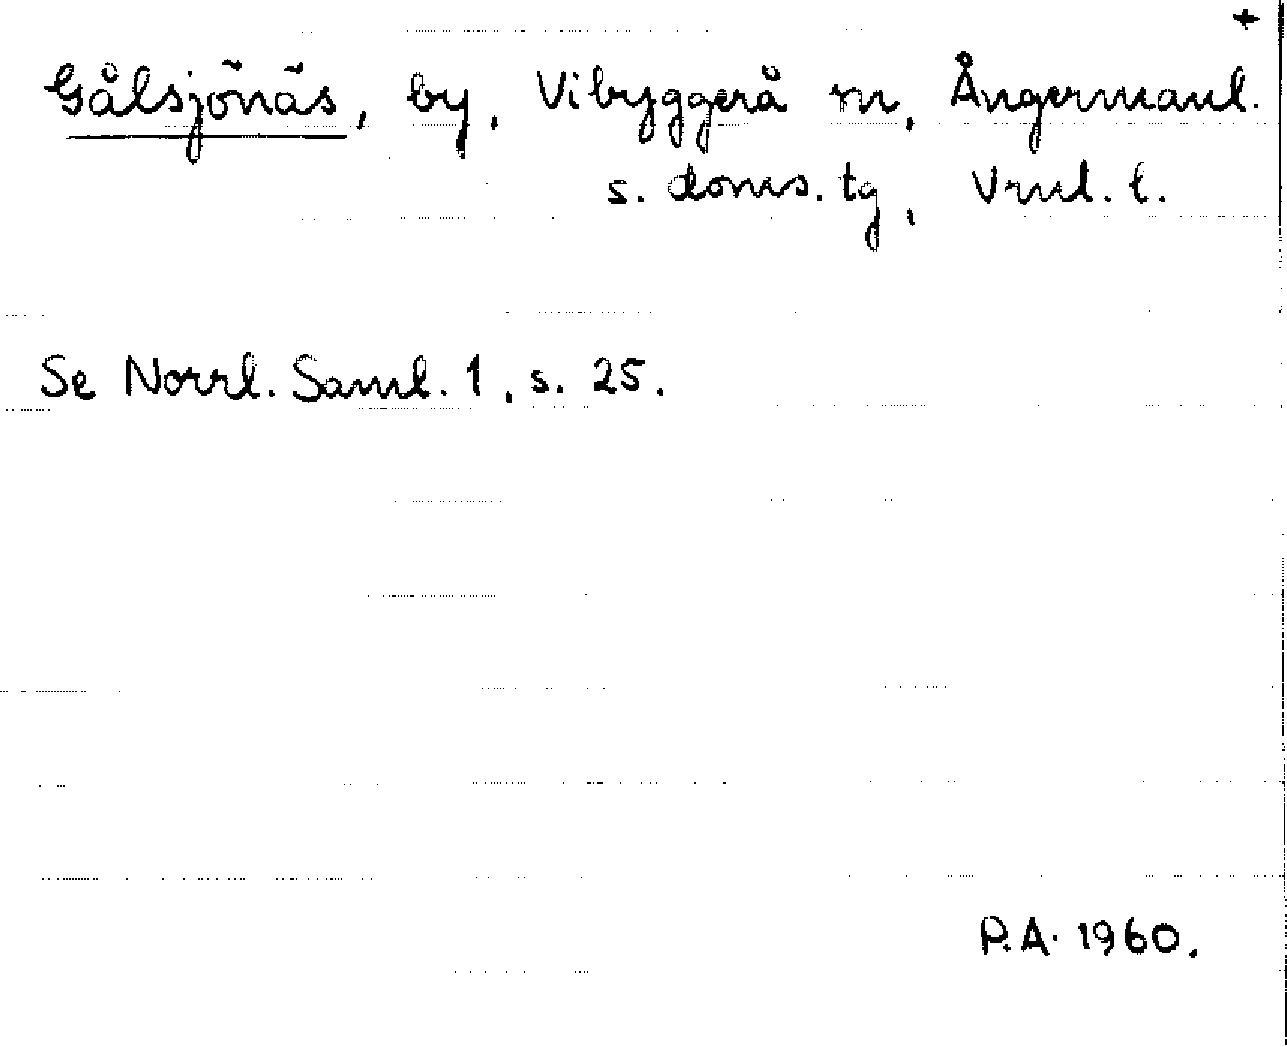 +
Gålsjönäs, by, Vibyggerå sn, Ångermanl.
s. doms. tg, Vrnl. l.
Se Norrl. Saml. 1, s. 25.
P.A. 1960.